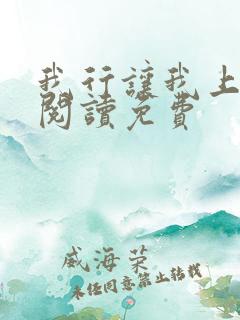 我行讓我上
閱讀免費
威海荣
未经同意禁止转载